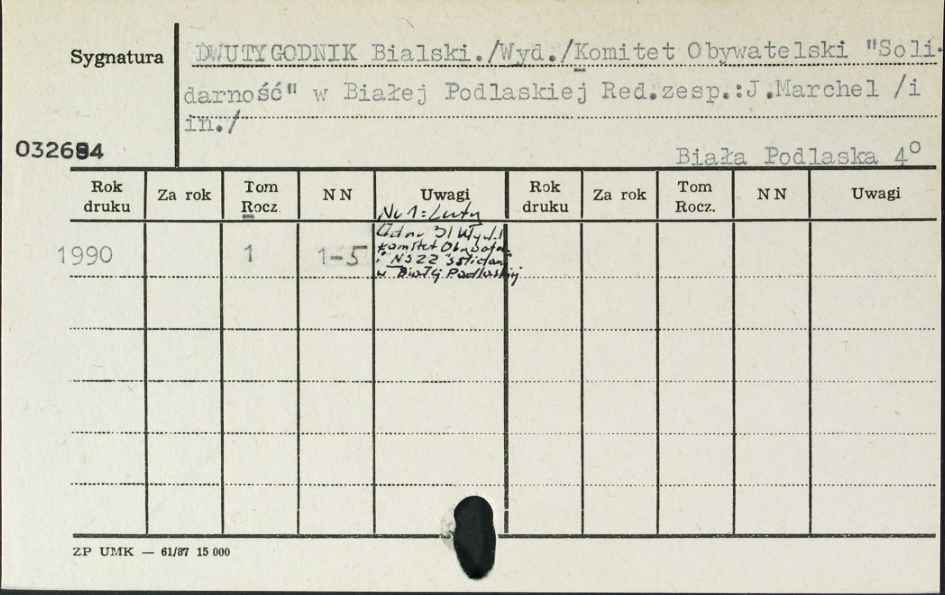 Sygnatura
DWUTYGODNIK Bialski./Wyd./Komitet Obywatelski "Soli-
darność" w Białej Podlaskiej Red.zesp.:J.Marchel /i
in./
032684
Biała Podlaska 4°
Rok druku Za rok Tom Rocz. NN Uwagi Rok druku Za rok Tom Rocz. NN Uwagi
Nr 1: Luty
Wyd.
1990 1 1-5 Komitet
i NSZZ
w Białej Podlaskiej
ZP UMK — 61/87 15 000